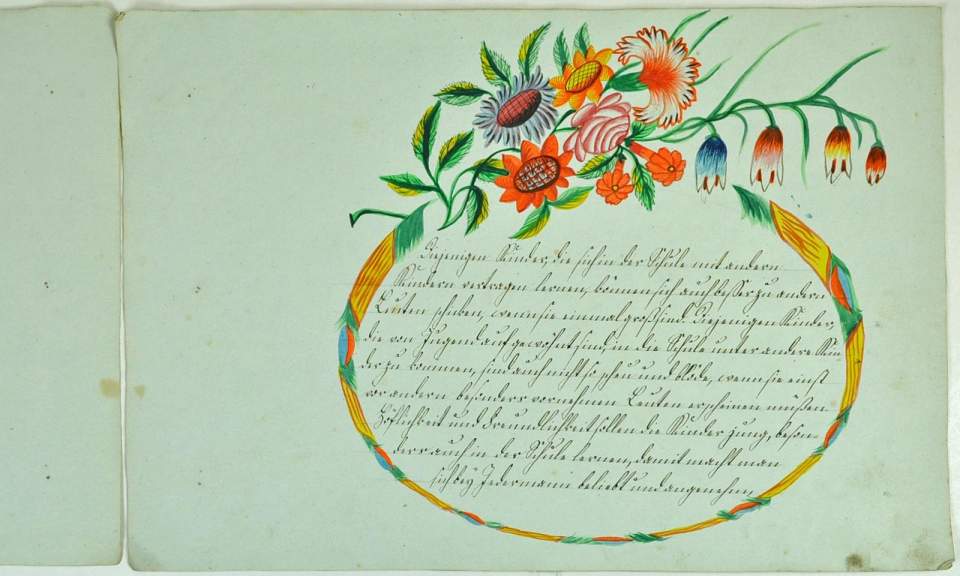 Diejenigen Kinder, die sich in der Schule mit andern
Kindern vertragen lernen, können sich auch besser zu andern
Leuten schicken, wenn sie einmal groß sind. Diejenigen Kinder,
die von Jugend auf gewöhnt sind, in die Schule unter andere Kin
der zu kommen, sind auch nicht so scheu und blöde, wenn sie einst
vor andern besonders vornehmen Leuten erscheinen müßen.
Höflichkeit und Freundlichkeit sollen die Kinder jung, beson-
ders auch in der Schule lernen, damit macht man
sich bey Jedermann beliebt und angenehm.